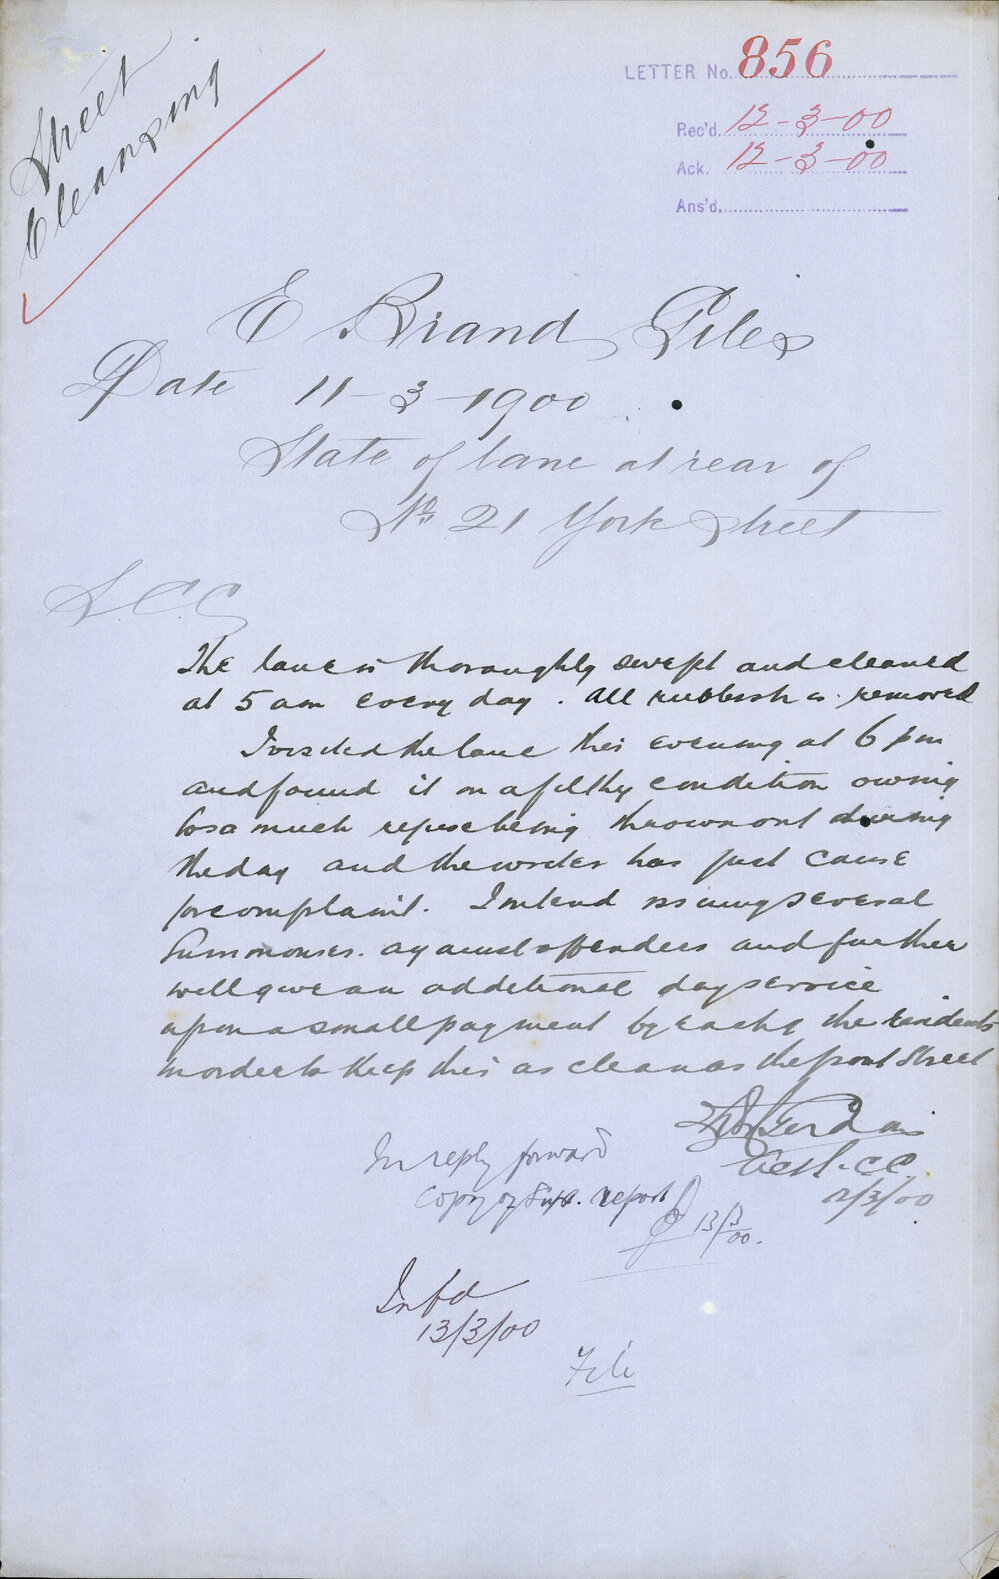 Street
Cleansing
LETTER No. 856
Rec'd. 12-3-00
Ack. 12-3-00
Ans'd.
E Briand Giles
Date 11-3-1900
State of lane at rear of
No 21 York Street
S C C
The lane is thoroughly swept and cleaned
at 5 am every day. All rubbish is removed
I visited the lane this evening at 6 pm
and found it in a filthy condition owing
to so much refuse being thrown out during
the day and the writer has just cause
for complaint. I intend issuing several
Summonses against offenders and further
will give an additional day service
upon a small payment by each of the residents
in order to keep this as clean as the front Street
Actg. C C
12/3/00
In reply forward
copy of Supt. report
13/3/00.
Infd
13/3/00
File